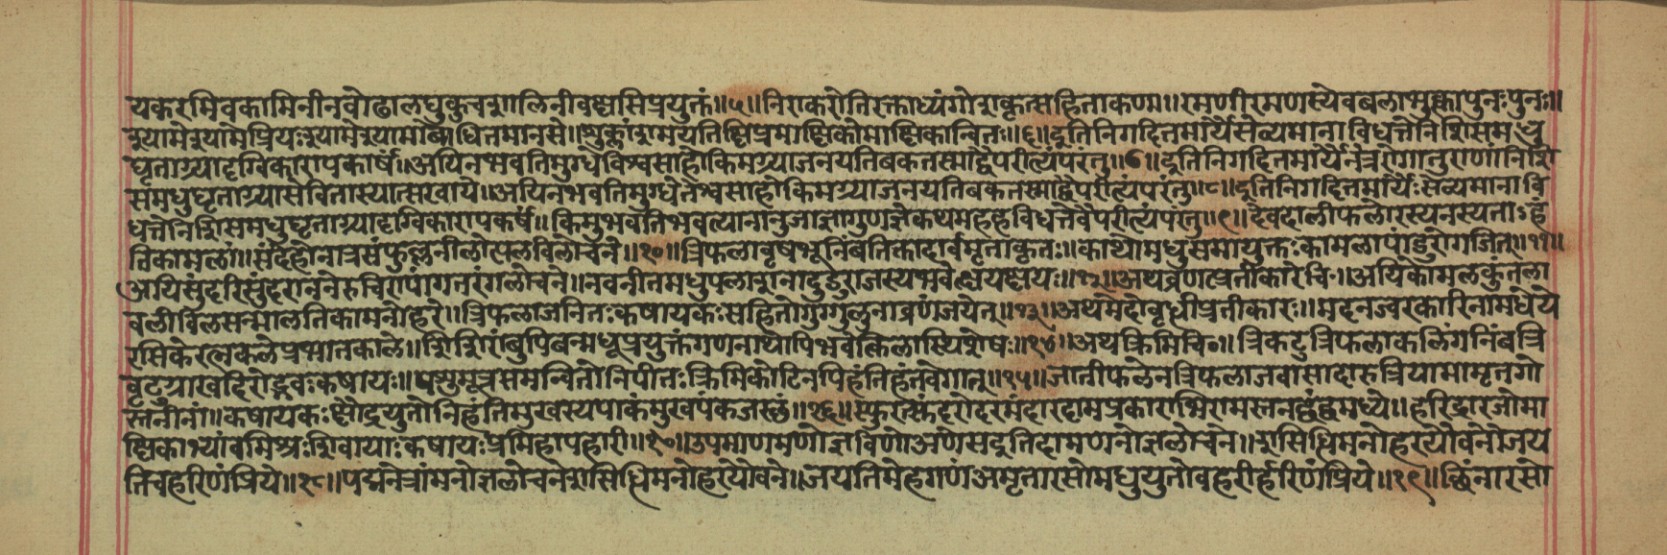 यकरमिवकामिनीनवोढालघुकुचशालिनीवध्वासिप्रयुक्तं॥५॥निराकरोतिरक्ताध्यंगोशकृत्सहिताकणा॥रमणीरमणस्येवबलामुक्तापुनःपुनः॥
श्रुयामेश्रुयामेप्रियःश्रुयामेश्रुयामाब्याधितमानसे॥शुक्लांशमयति प्रमा कोमा कान्वितः॥६॥दूतिनिगदितमार्यैसेव्यमानाविधत्तेनिशिसमधु
घृताग्र्यादृग्विकारापकर्षं॥अयिनभवतिमुग्धेविश्वसाहोकिमग्र्याजनयतिबकतस्माद्वैपरीत्यंपरंतु॥७॥दूतिनिगदितमार्यैर्नेत्ररोगातुराणांनिशि
समधुघृताग्र्यासेवितास्यात्सखाये॥अयिनभवतिमुग्धेतेश्वसाहोकिमग्र्याजनयतिबकतस्माद्वैपरीत्यंपरंतु॥८॥दूतिनिगदितमार्यैःसेव्यमानावि
धत्तेनिशिसमधुघृताग्र्यादृग्विकारापकर्षं॥किमुभवतिभवत्यानानुजाज्ञागुणज्ञेकथमहहविधत्तेवैपरीत्यंपरंतु॥९॥देवदालीफलोरस्यनस्यतोऽहं
तिकामलां॥संदेहोनात्रसंफुल्लनीलोत्पलविलोचने॥१०॥त्रिफलावृषभूनिंबतिक्तादार्वमृताकृतः॥काथोमधुसमायुक्तःकामलापांडुरोगजित्॥११॥
अयिसुंदरिसुंदराननेरुचिरापांगतरंगलोचने॥नवनीतमधुपलाशनादुडुराजस्यभवेत्क्षयक्षयः॥१२॥अथव्रणप्रतीकारेचि॰॥अयिकोमलकुंतला
वलीविलसन्मालतिकामनोहरे॥त्रिफलाजनितःकषायकःसहितोगुग्गुलुनाव्रणंजयेत्॥१३॥अथमेदोवृधीप्रतीकारः॥मदनज्वरकारिनामधेये
रसिकेरत्नकलेप्रभातकाले॥शिशिरांबुपिबन्मधूप्रयुक्तंगणनाथोपिभवेत्किलास्थिशेषः॥१४॥अथक्रिमिचि॰॥त्रिकटुत्रिफलाकलिंगनिंबत्रि
वृदुग्राखदिरोद्भवःकषायः॥पशुमूत्रसमन्वितोनिपीतःक्रिमिकोटिनपिहंतिहंतवेगात्॥१५॥जातीफलेनत्रिफलाजवासादारुत्रियामामृतगो
स्तनीनां॥कषायकःक्षौद्रयुतोनिहंतिमुखस्यपाकंमुखपंकजस्थं॥१६॥स्फुरत्स्फारदरोदरमंदारदामप्रकाराभिरामस्तनद्वंद्वमध्ये॥हरिद्रारजोमा
क्षिकाभ्यांवमिश्रःशिवायाःकषायःप्रमेहापहारी॥१७॥उपमाणमणोज्ञविणोअणेसदुतिदामणनोज्ञलोचने॥शसिधिमनोहरयौवनेजय
तिचहरिणप्रिये॥१८॥पद्मनेत्रांमनोज्ञलोचनेशसिधिमनोहरयौवने॥जयतिमेहगणंअमृतारसोमधुयुतोवहरीर्हरिणंप्रिये॥१९॥छिंनारसो